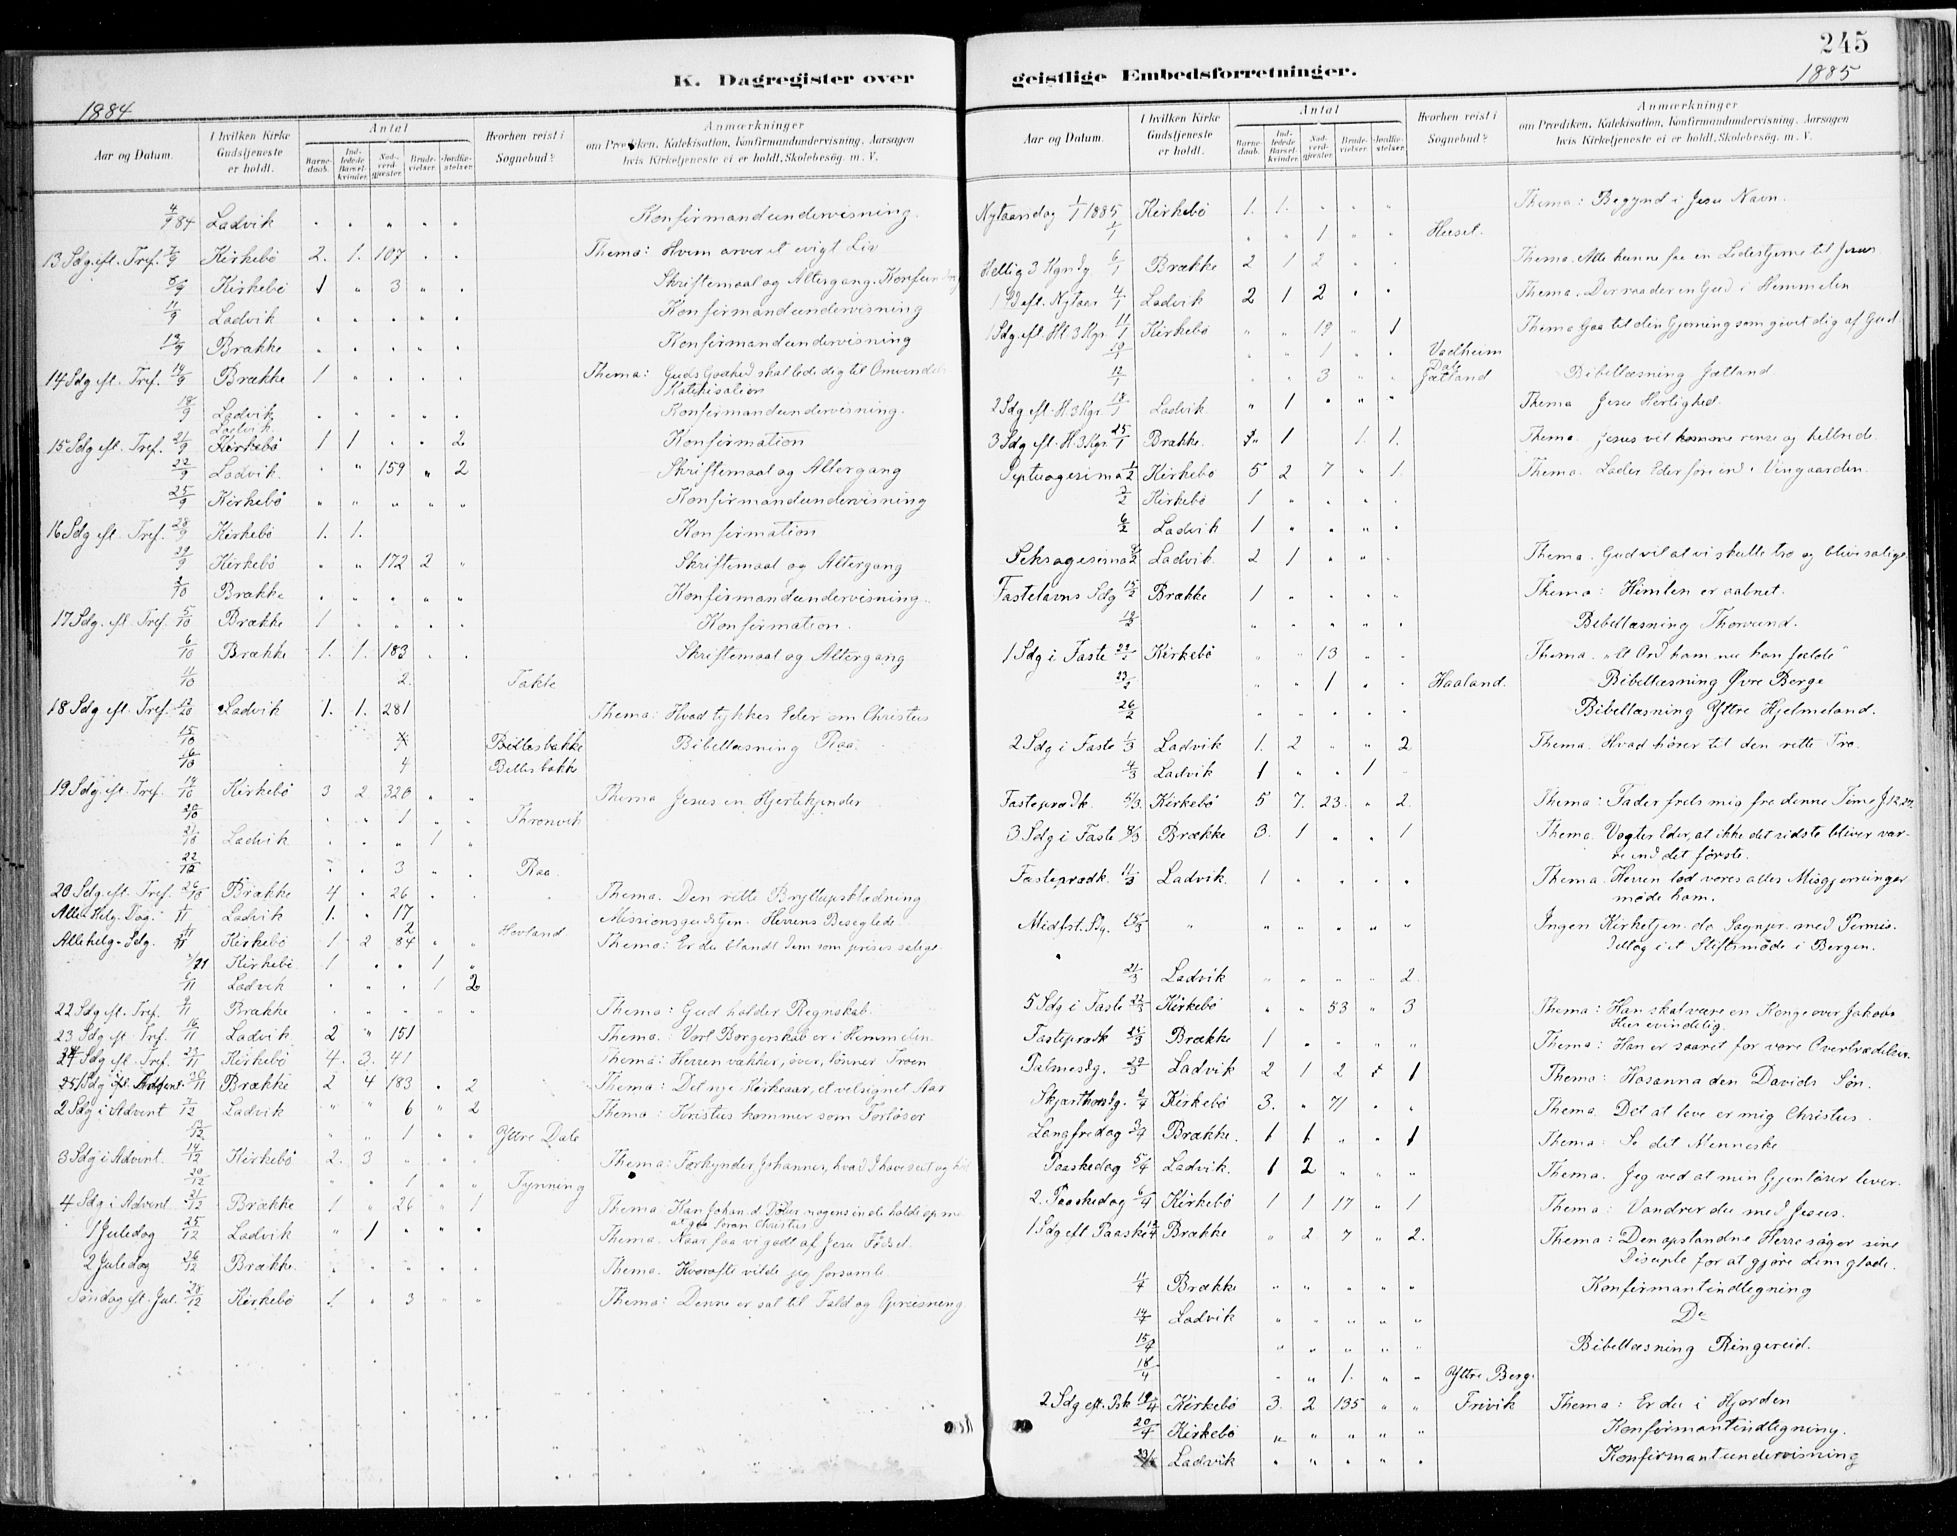 245
K. Dagregister over geistlige Embedsforretninger.
1884
1885
Aar og Datum. I hvilken Kirke Gudstjeneste er holdt. Antal Barnedaab. Indledede Barselkvinder. Nadverdgjæster. Brudevielser. Jordfæstelser. Hvorhen reist i Sognebud? Anmærkninger om Prædiken, Katekisation, Konfirmandundervisning, Aarsagen hvis Kirketjeneste ei er holdt, Skolebesög. m. V.
4/9 84 Ladvik " " " " " Konfirmandundervisning.
13 Sdg. eft. Tref. 7/9 Kirkebö 2. 1. 107 " " Thema: Hvem arver et evigt Liv
8/9 Kirkebö 1 " 3 " " Skriftemaal og Altergang.
11/9 Ladvik " " " " " Konfirmandundervisning
12/9 Brække " " " " " Konfirmandundervisning
14 Sdg eft. Tref. 14/9 Brække 1 " " " " Thema: Guds Godhed skal lede dig til
Katekisation
18/9 Ladvik " " " " " Konfirmandundervisning.
Ladvik
15 Sdg eft. Tref. 21/9 Kirkebö 1 1 " " 2 Konfirmation
22/9 Ladvik. " " 159 " 2 Skriftemaal og Altergang
25/9 Kirkebö " " " " " Konfirmandundervisning
16 Sdg eft. Tref. 28/9 Kirkebö 1. 1. Konfirmation
29/9 Kirkebö " " 172 2 " Skriftemaal og Altergang
2/10 Brække " " " " " Konfirmandundervisning.
17 Sdg. eft. Tref. 5/10 Brække 1 " " " " Konfirmation.
6/10 Brække 1. 1. 183 " " Skriftemaal og Altergang
11/10 2. Takle
18 Sdg eft. Tref. 12/10 Ladvik 1. 1. 281 Thema: Hvad tykkes Eder om Christus
15/10 Bibellæsning Raa.
16/10 4
19 Sdg. eft. Tref. 19/10 Kirkebö 3 2 320 " " Thema Jesus en Hjertekjender
20/10 " " 1 " " Thronvik
21/10 Ladvik " " " 1 "
22/10 " " 3 " " Raa.
20 Sdg. eft. Tref. 26/10 Brække 4 " 26 " " Thema. Den rette Bryllupsklædning
Alle Helg. Dag. 1/11 Ladvik 1. " 17 Missionsgudstjen. Herrens Beseglede.
2 Hovland
Allehelg. Sdg. Kirkebö 1 2 84 " " Thema: Er du blandt dem som prises salige.
Kirkebö 1 " " 1 "
6/11 Ladvik " " " 1 2
22 Sdg eft. Tref. 9/11 Brække " " " " " Thema: Gud holder Regnskab.
23 Sdg eft. Tref. 16/11 Ladvik 2 " 151 Thema: Vort Borgerskab er i Himmelen.
24 Sdg eft. Tref. 23/11 Kirkebö 4. 3. 41 Thema: Herren vækker, över, lönner Troen
Advent. 30/11 Brække 2 4 183 " 2 Thema: Det nye Kirkeaar, et velsignet Aar
2 Sdg i Advent 7/12 Ladvik " " 6 " 2 Thema: Kristus kommer som Forlöser
13/12 " " 1 " " Yttre Dale
3 Sdg i Advent. 14/12 Kirkebö 2. 3 " " " Thema: Forkynder Johannes, hvad I have seet og hört
20/12 " " 1 " " Tynning
4 Sdg i Advent 21/12 Brække 1 " 26 " 1
1 Juledag 25/12 Ladvik " 1 " " " Thema. Naar faa vi godt af Jesu Födsel.
2 Juledag 26/12 Brække. " " " " " Thema. Hvor ofte vilde jeg forsamle
Söndag eft. Jul. 28/12 Kirkebö 1. " 3 " " Thema: Denne er sat til Fald og Opreisning
Aar og Datum. I hvilken Kirke Gudstjeneste er holdt. Antal Barnedaab. Indledede Barselkvinder. Nadverdgjæster. Brudevielser. Jordfæstelser. Hvorhen reist i Sognebud? Anmærkninger om Prædiken, Katekisation, Konfirmandundervisning, Aarsagen hvis Kirketjeneste ei er holdt. Skolebesög. m. V.
Nytaarsdag 1/1 1885 Kirkebö 1. 1. " " " Thema: Begynd i Jesu Navn.
1/1 " " 1 " " Huset.
Hellig 3 Kgrdg. 6/1 Brække 2 1 2 " " Thema. Alle kunne faa en Ledestjerne til Jesus
1 Sd eft. Nytaar 4/1 Ladvik 2 1 2 " " Thema. Der raader en Gud i Himmelen
1 Sdg. eft. Hl. 3 Kgr. 11/1 Kirkebö " " 19 " 1 Thema Gaa til din Gjerning som givet dig af Gud.
" " 1 " " Vadheim
12/1 " " 3 " " Dale Jætland Bibellæsning Jætland
2 Sdg eft. H. 3 Kgr. 18/1 Ladvik. " 1 " " " Thema Jesu Herlighed.
3 Sdg eft. H. 3 Kgr. 25/1 Brække. 1 1. 1. Thema. Jesus vil komme rense og helbrede.
Septuagesima 1/2 Kirkebö 5 2 7 " 1. Thema. Lader Eder före ind i Vingaarden.
2/2 Kirkebö 1 " " " "
6/2 Ladvik 1 " " " "
Seksagesima 8/2 Ladvik. 2 1 " " " Thema. Gud vil at vi skulle tro og blive salige
Fastelavns Sdg 15/2 Brække 1 " " " " Thema: Himlen er aabnet.
19/2 " " " " " Bibellæsning Thorsund.
1 Sdg i Faste 22/2 Kirkebö " " 13 " " Thema. "Et Ord ham nu kan fælde"
23/2 " " 1 " " Haaland. Bibellæsning Övre Berge
26/2 " " " " " Bibellæsning Yttre Hjelmeland.
2 Sdg i Faste 1/3 Ladvik 1. 2 " " 2 Thema. Hvad hörer til den rette Tro.
4/3 Ladvik 1 " " 1 "
Fasteprædk. 5/3. Kirkebö 5 7. 23. " 2. Thema: Fader frels mig fra denne Time J. 12.27.
3 Sdg i Faste 8/3 Brække 3. 1 " " 1 Thema. Vogter Eder, at ikke det sidste bliver vær-
re end det förste.
Fasteprædk. 11/3 Ladvik. 1 " " " " Thema. Herren lod vores alles Misgjerninger
möde ham.
Midfst. Sdg. 15/3 " " " " " " Ingen Kirketjen. da Sognpr. med Permis.
deltog i et Stiftsmöde i Bergen.
21/3 Ladvik " " " " 2.
5 Sdg i Faste 22/3 Kirkebö " " 53 " 3 Thema: Han skal være en Konge over Jakobs
Hus evindelig.
Fasteprædk Brække 1 " " " " Thema: Han er saaret for vore Overtrædelser.
Palmesdg. 29/3 Ladvik 2 1 2 1 Thema: Hosanna den Davids Sön.
Skjærthorsdg. 2/4 Kirkebö 3. " 71 " " Thema. Det at leve er mig Christus.
Langfredag 3/4 Brække. 1 1 " " 1 Thema: Se det Menneske
Paaskedag 5/4 Ladvik. 1 2 " " " Thema. Jeg ved at min Gjenlöser lever.
2. Paaskedag 6/4 Kirkebö 1 1 17 " 1 Thema: Vandrer du med Jesus.
1 Sdg eft. Paaske 12/4 Brække " 2 7 " 2. Thema: Den opstandne Herre söger sine
Disciple for at gjöre dem glade.
11/4 Brække " " " " " Konfirmantindtegning
14/4 Ladvik " " " " " Do
15/4 " " " " " Bibellæsning Ringereid.
18/4 " " 1. " " Yttre Berg.
2 Sdg eft. Psk 19/4 Kirkebö 3. 2 135 " " Frivik Thema: Er du i Hjorden
20/4 Kirkebö " " " " " Konfirmantindtegning.
Ladvik " " " " " Konfirmantundervisning